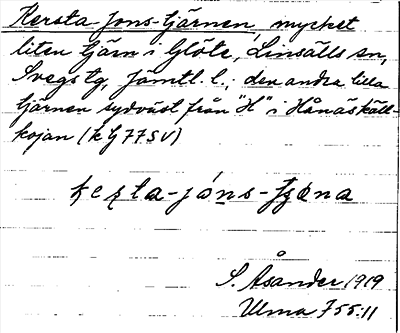 Kersta-Jons-tjärnen, mycket
liten tjärn i Glöte, Linsälls sn,
Svegs tg, Jämtl. l.; den andra lilla
tjärnen sydväst från "H" i Hånäskäll-
kojan (k bj 77 SV)
S. Åsander 1919
Ulma 755:11